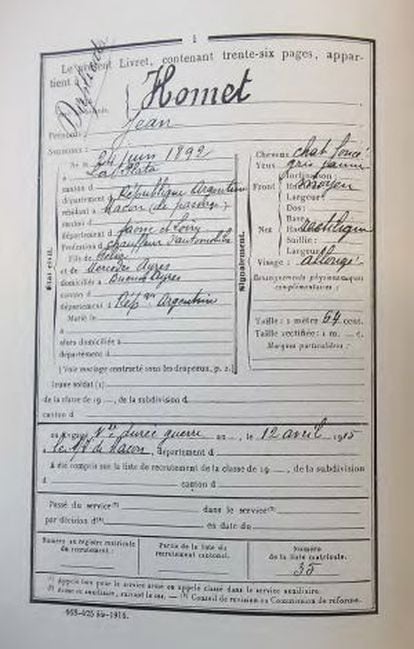 1
Le présent Livret, contenant trente-six pages, appar-
tient à
Duplicata
Homet
Prénoms : Jean
Surnoms :
Né le 24 juin 1892
à La Plata
canton d
département d République Argentine
résidant à Macon (de passage)
canton d
département d Saone et Loire
Profession d chauffeur d'automobile
Fils de
et de Mercedes Ayres
domiciliés à Buenos Ayres
canton d
département d Rép. Argentine
Marié le
à
alors domiciliée à
département d
(Voir mariage contracté sous les drapeaux, p. 2.)
État civil.
Signalement.
Cheveux : chat. foncé
Yeux gris jaune
Front
Inclinaison :
Hauteur moyen
Largeur :
Nez
Dos :
Base : rectiligne
Hauteur :
Saillie :
Largeur :
Visage : allongé
Renseignements physionomiques
complémentaires :
Taille : 1 mètre 64 cent.
Taille rectifiée : 1 m. c.
Marques particulières :
Jeune soldat (1)
de la classe de 19 , de la subdivision d
canton d
engagé Vre durée guerre , le 12 avril 1915
à Macon, département d
A été compris sur la liste de recrutement de la classe de 19 , de la subdivision
d canton d
Passé du service(2) dans le service(2)
par décision d(3) en date du
Numéro au registre matricule
du recrutement :
Partie de la liste du
recrutement cantonal.
Numéro
de la liste matricule.
35
(1) Appelé bon pour le service armé ou appelé classé dans le service auxiliaire.
(2) Armé ou auxiliaire, suivant le cas. — (3) Conseil de revision ou Commission de réforme.